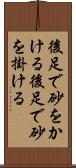 後足で砂をか
ける後足で砂
を掛ける